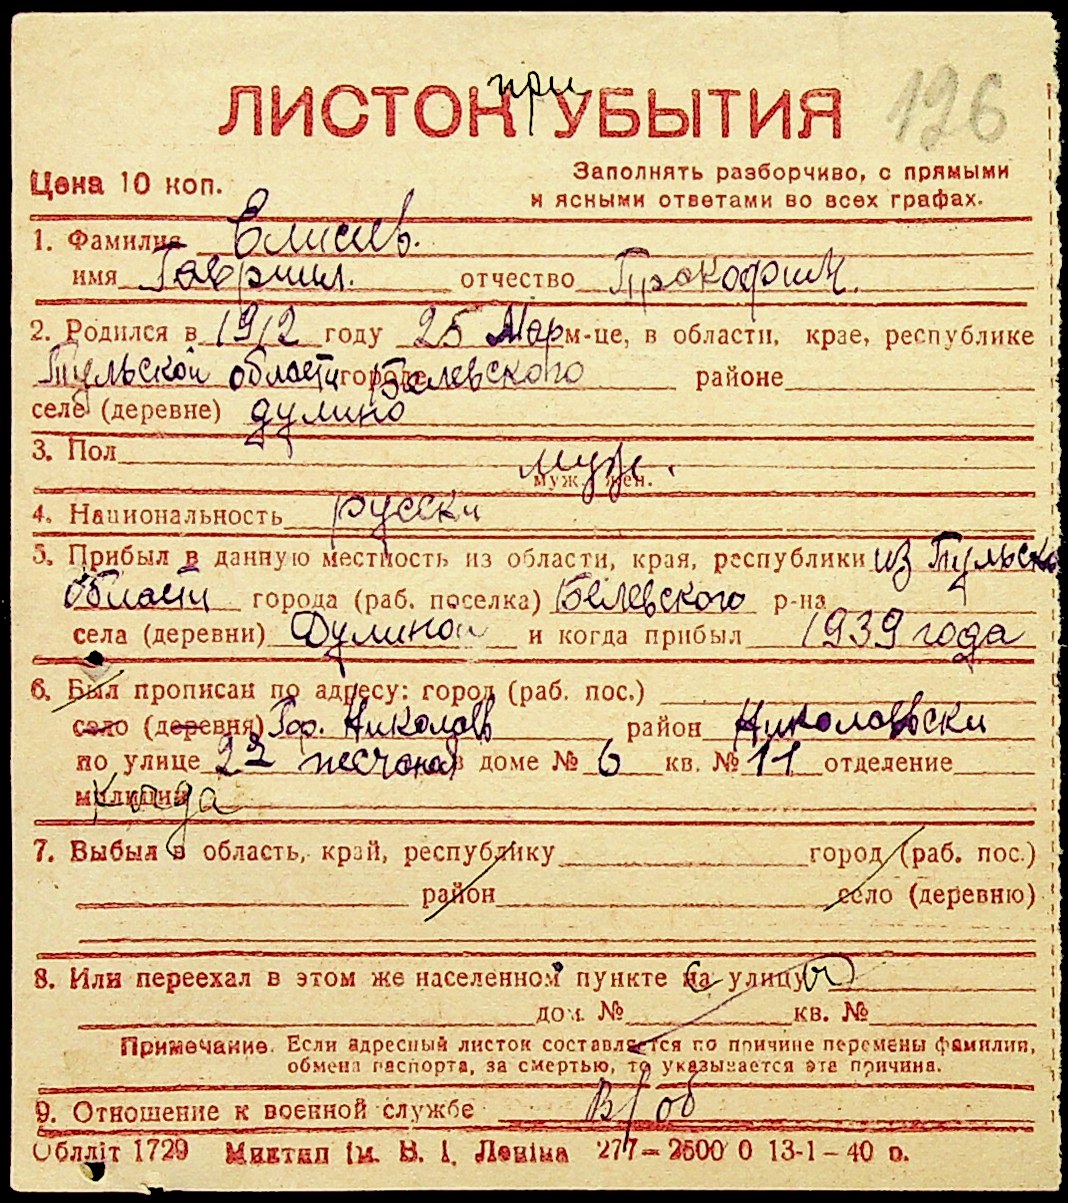 при
ЛИСТОК УБЫТИЯ 196
Цена 10 коп.
Заполнять разборчиво, с прямыми
и ясными ответами во всех графах.
1. Фамилия Елисеев.
имя Гавриил. отчество Прокофич.
2. Родился в 1912 году 25 Мар м-це, в области, крае, республике
Тульской области городе Белевского районе
селе (деревне) Дулино
3. Пол муж.
муж. жен.
4. Национальность русски
5. Прибыл в данную местность из области, края, республики из Тульско
области города (раб. поселка) Белевского р-на
села (деревни) Дулиной и когда прибыл 1939 года
6. Был прописан по адресу: город (раб. пос.)
село (деревня) Гор. Николаев район Николаевски
по улице 22 песчаная в доме № 6 кв. № 11 отделение
милиции
7. Выбыл в область, край, республику город (раб. пос.)
район село (деревню)
8. Или переехал в этом же населенном пункте на улицу
дом. № кв. №
Примечание. Если адресный листок составляется по причине перемены фамилии,
обмена паспорта, за смертью, то указывается эта причина.
9. Отношение к военной службе в/об
Обллiт 1729 Миктип iм. В. I. Ленiна 277—2500 0 13-1-40 р.